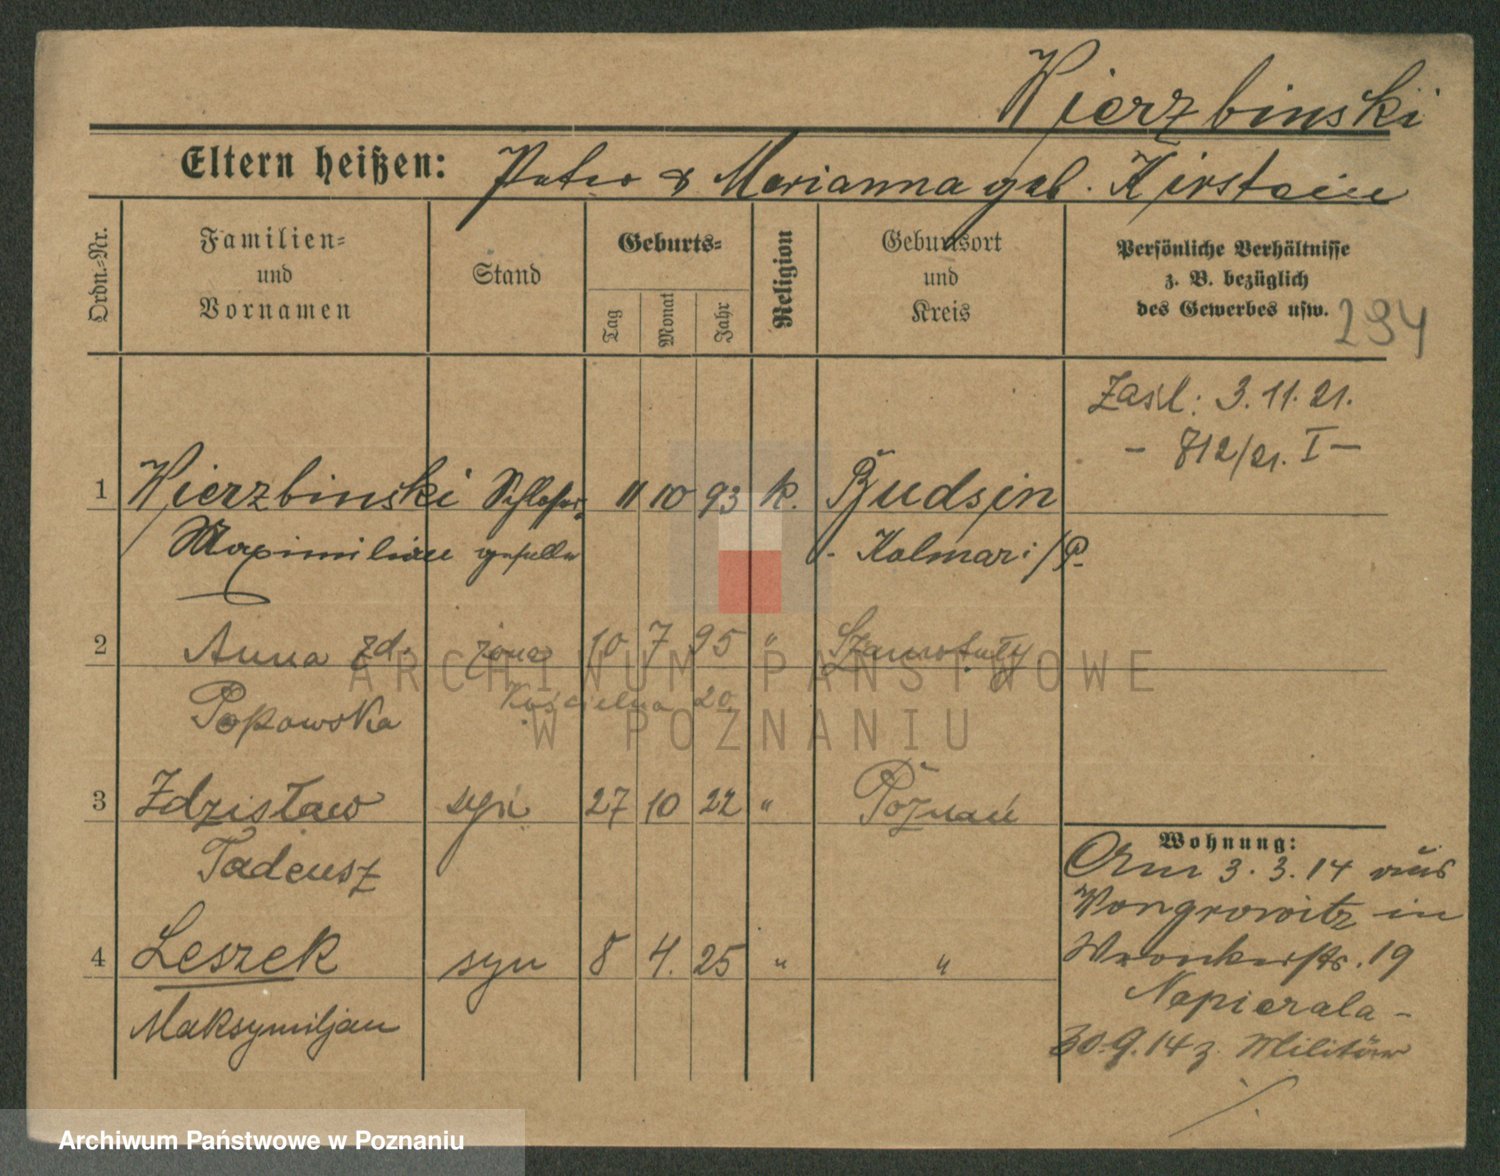 Wierzbinski
Eltern heißen: Peter & Marianna geb. Kirstein
Ordn.-Nr.
Familien-
und
Vornamen
Stand
Geburts-
Tag
Monat
Jahr
Religion
Geburtsort
und
Kreis
Persönliche Verhältnisse
z. B. bezüglich
des Gewerbes usw.
294
Zasl: 3.11.21.
- 712/21. I -
1 Wierzbinski Schlosser- 11 10 93 k. Budsin
Maximilian geselle - Kolmar i/P.
2 Anna zd. żona 10 7 95 " Szamotuły
Kościelna 20
Popowska
3 Zdzisław syn 27 10 22 " Poznań
Tadeusz
4 Leszek syn 8 4. 25 " "
Maksymiljan
Wohnung:
Am 3.3.14 aus
Wongrowitz in
Wronkerstr. 19
Napierala -
30.9.14 z. Militär
ARCHIWUM PAŃSTWOWE
W POZNANIU
Archiwum Państwowe w Poznaniu